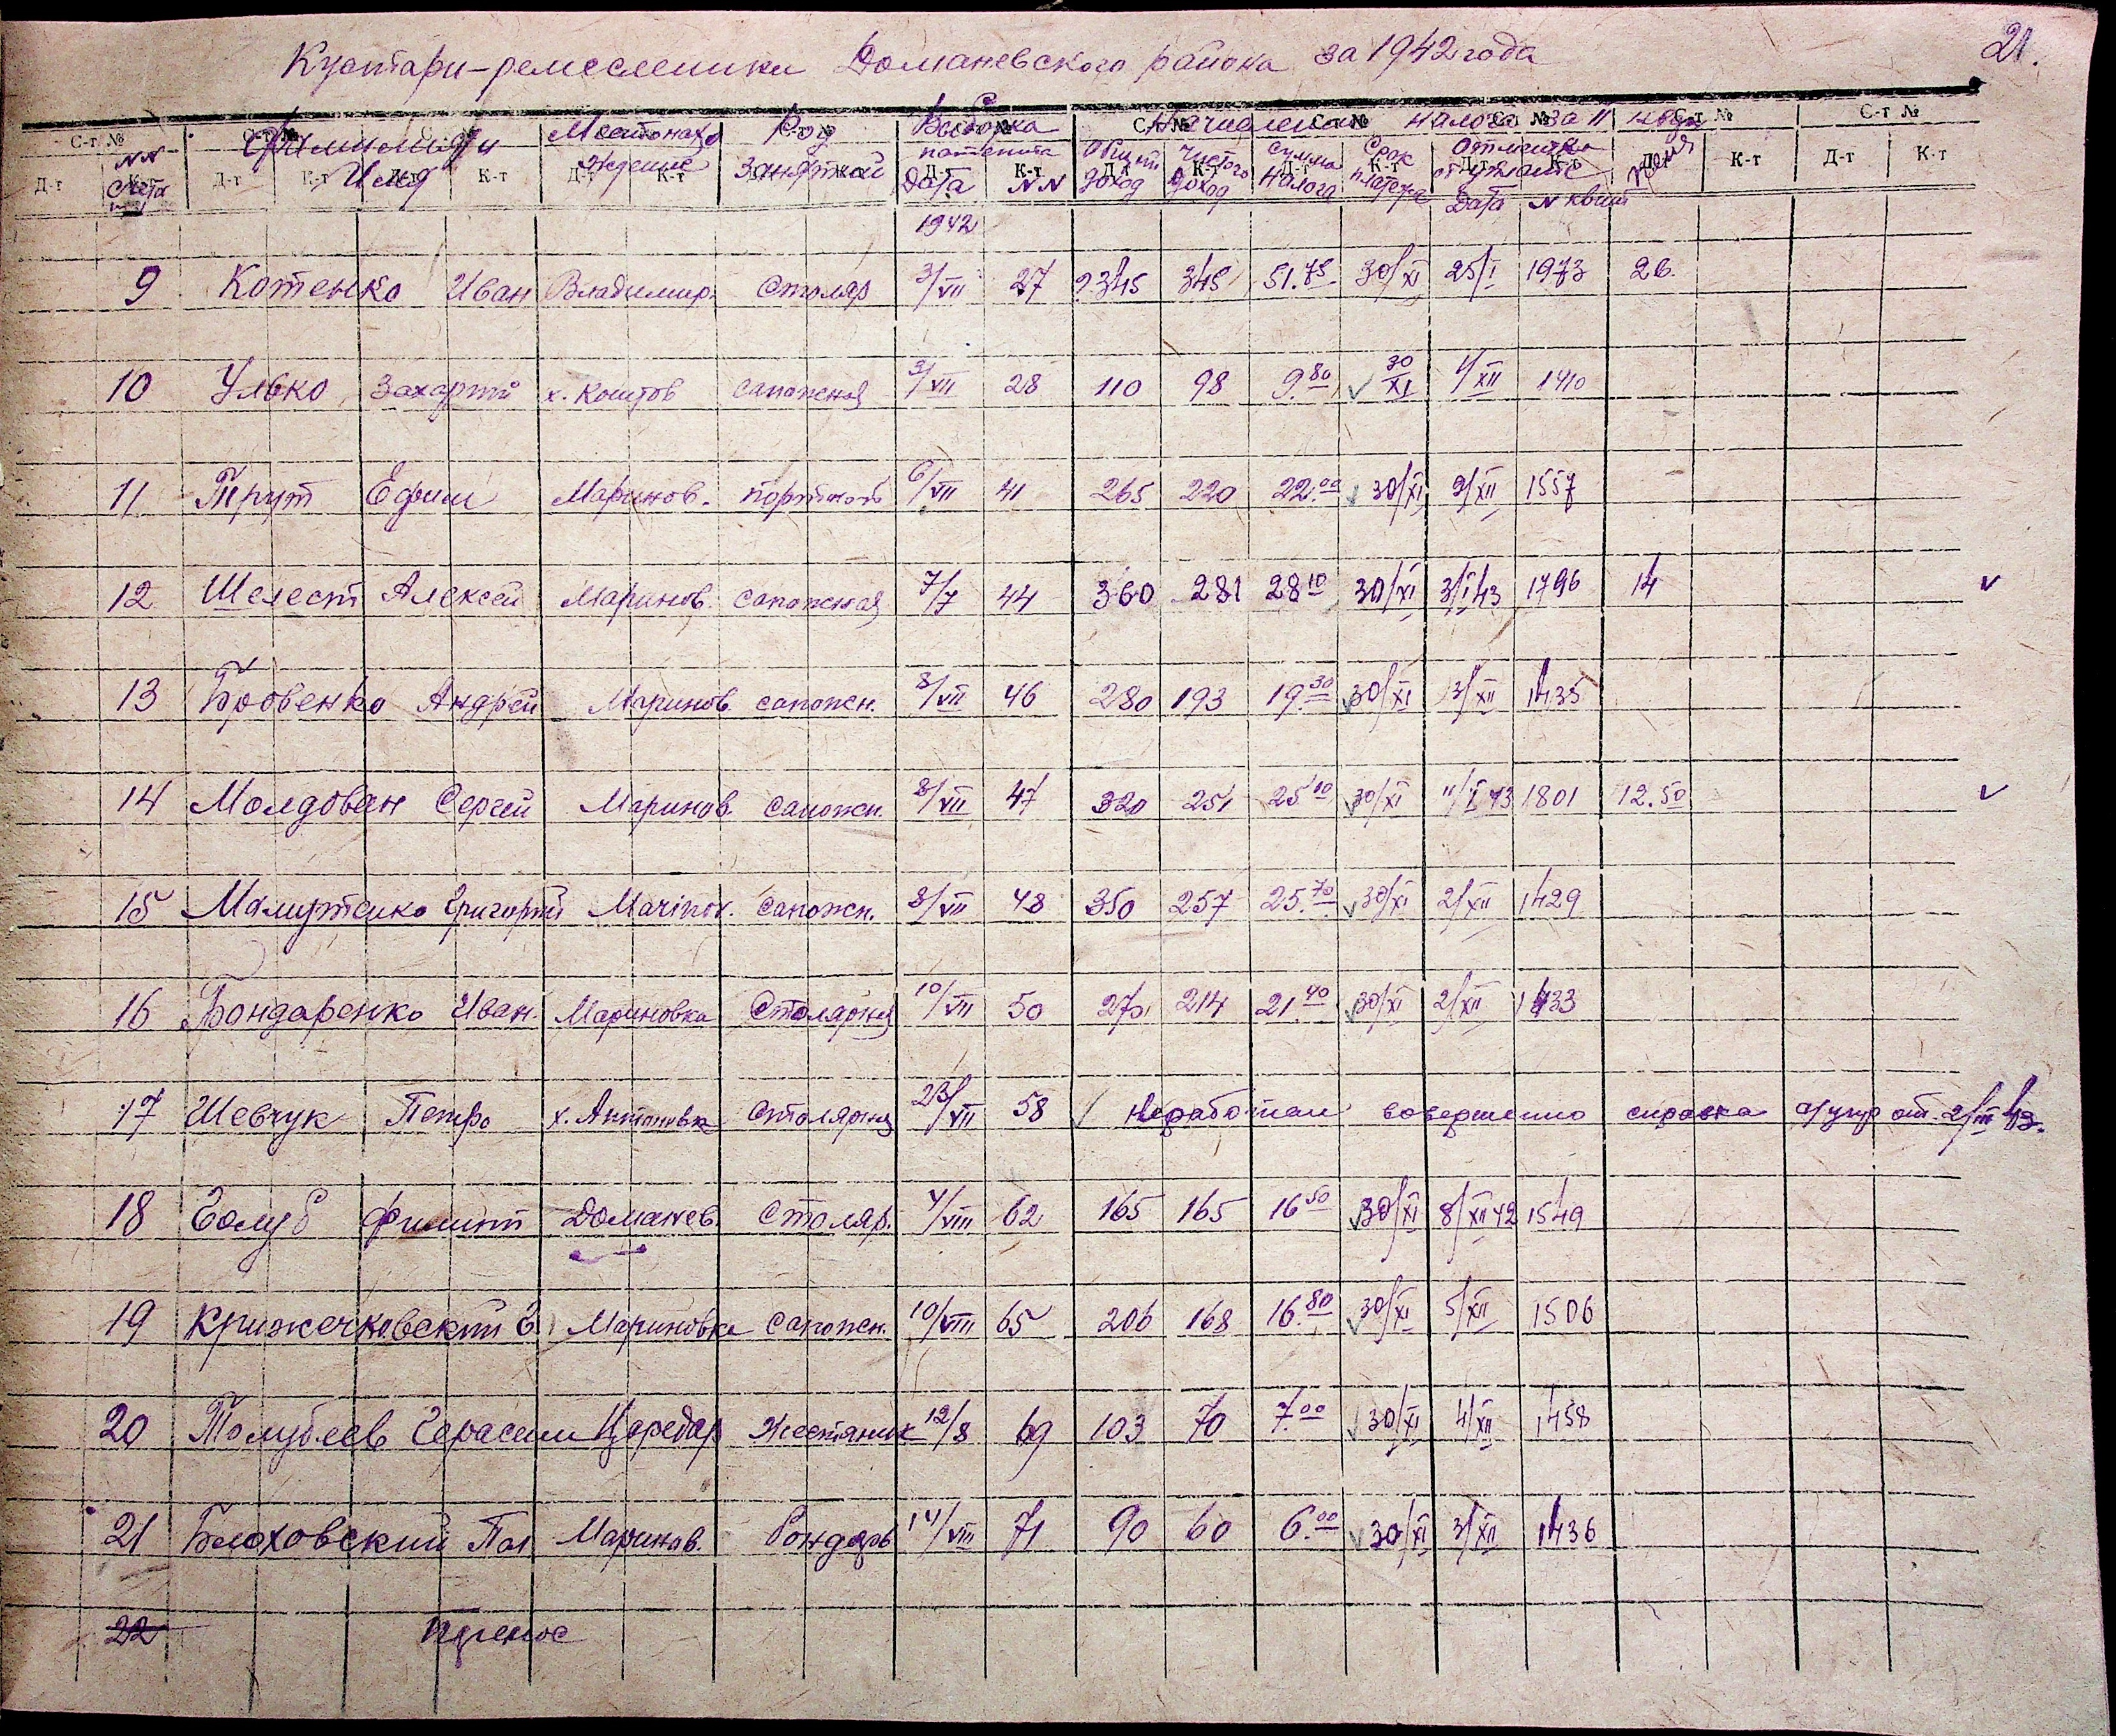 Кустари-ремесленики Доманевского района за 1942 года
21.
NN счета Фамилия и Имя Местонахождение Род занятий Выборка патента Дата NN Начисления налога за II Общий доход Чистого доход Сумма налога Срок платежа Отметка Дата N квит пеня
1942
9 Котенко Иван Владимир. столяр 3/VII 27 2345 345 51.75 30/XI 25/I 1973 26.
10 Улько Захарий х. сапожная 3/VII 28 110 98 9.80 30/XI 4/XII 1410
11 Трут Ефим Маринов. портной 6/VII 41 265 220 22.00 30/XI 9/XII 1557
12 Шелест Алексей Маринов. сапожная 7/7 44 360 281 28 10 30/XI 3/I 43 1796 14
13 Бровенко Андрей Маринов. сапожн. 8/VII 46 280 193 19.30 30/XI 3/XII 1435
14 Молдован Сергей Маринов. сапожн. 8/VII 47 320 251 25 10 30/XI 11/I 43 1801 12.50
15 Григорий Marinov. сапожн. 8/VII 48 350 257 25.70 30/XI 2/XII 1429
16 Бондаренко Иван. Мариновка Столярная 10/VII 50 270 214 21.40 30/XI 2/XII 1433
17 Шевчук Петро х. Антоновка столярная 23/VII 58 Неработал совершенно справка от 2/III 43.
18 Голуб Филипп Доманев. Столяр. 4/VIII 62 165 165 16 50 30/XI 8/XII 42 1549
19 Крижечковский Г. Мариновка сапожн. 10/VIII 65 206 168 16.80 30/XI 5/XII 1506
20 Толубеев Герасим Царедар Жестяник 12/8 69 103 70 7.00 30/XI 4/XII 1458
21 Блоховский Пал Маринов. бондарь 14/VIII 71 90 60 6.00 30/XI 3/XII 1436
22 Перенос